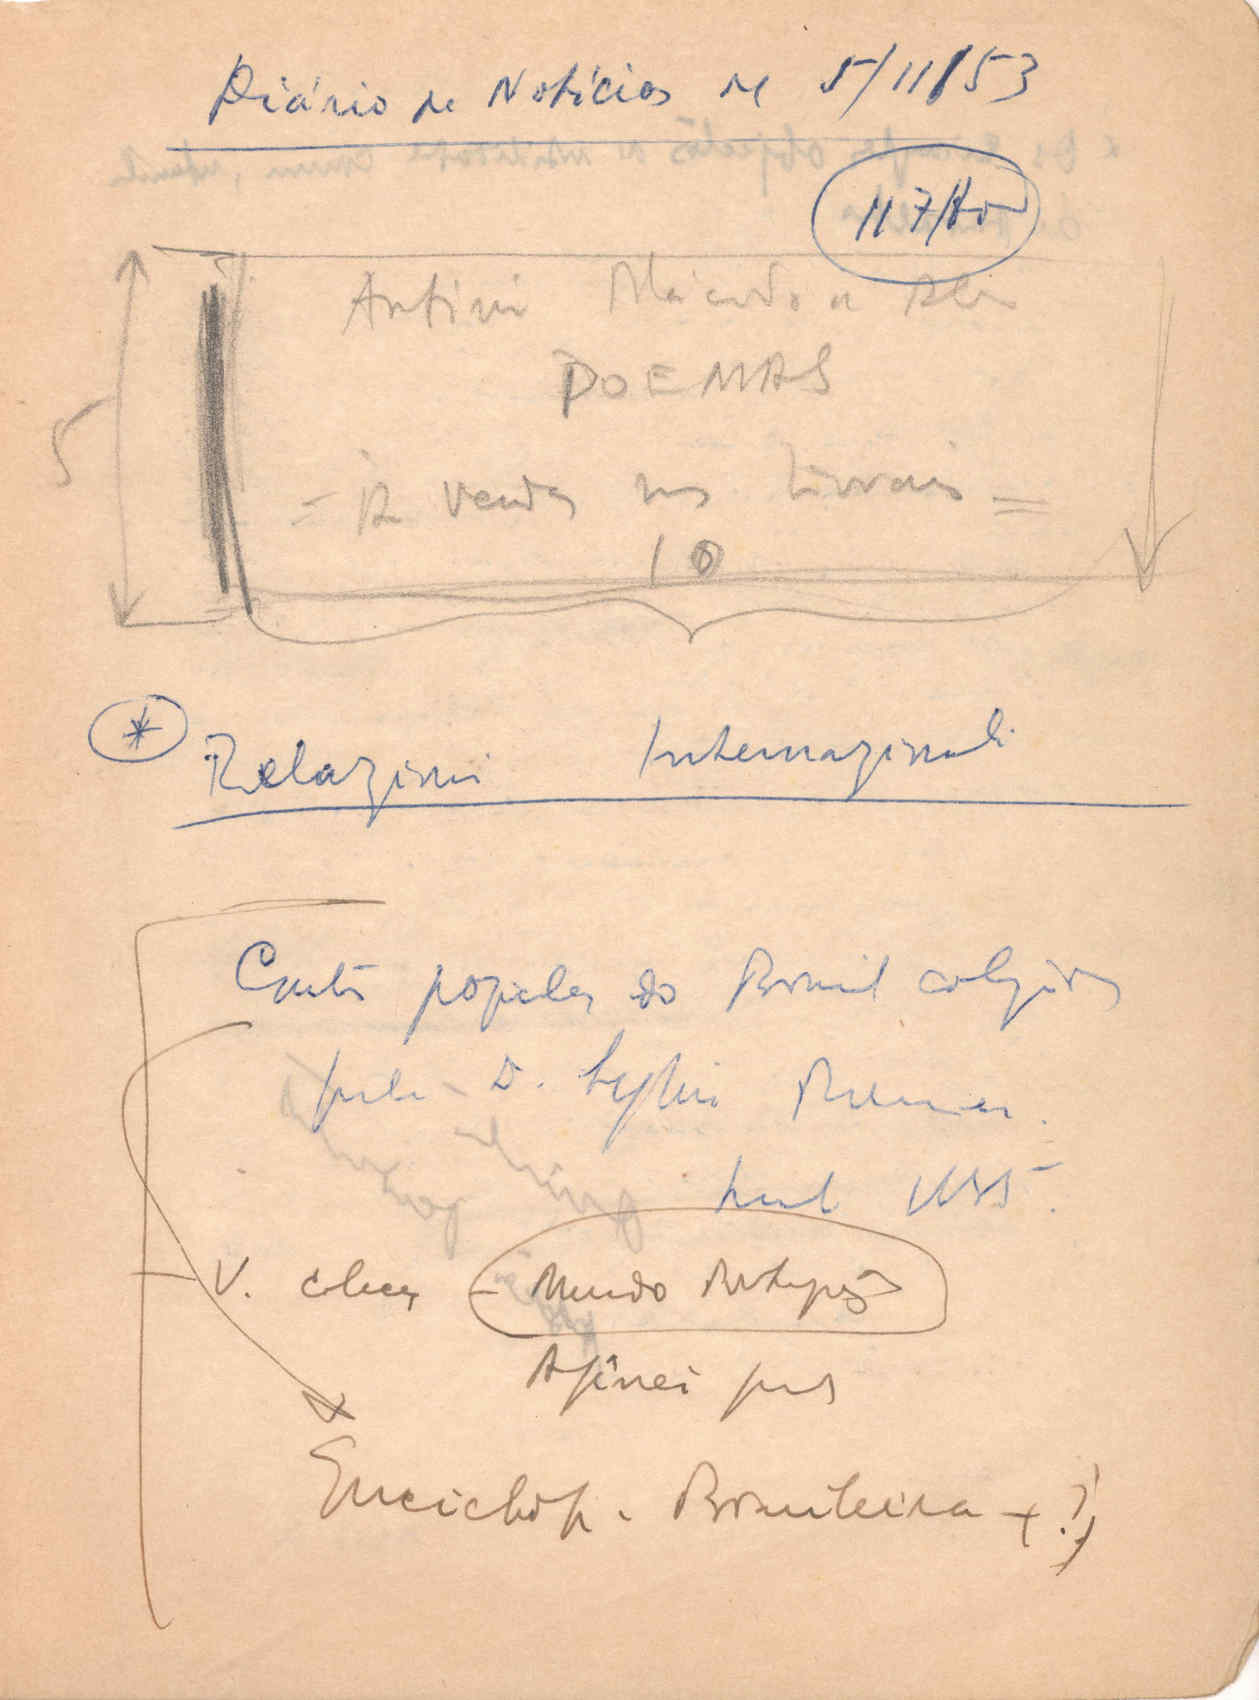 Diário de Notícias de 5/11/53
117/
António Macedo
POEMAS
= À venda nas livrarias =
5
10
*
Relazioni Internazionali
Contos populares do Brasil coligidos
pelo D. Sylvio Romero.
1885.
V. obras - Mundo Português
Enciclop. Brasileira + ?)